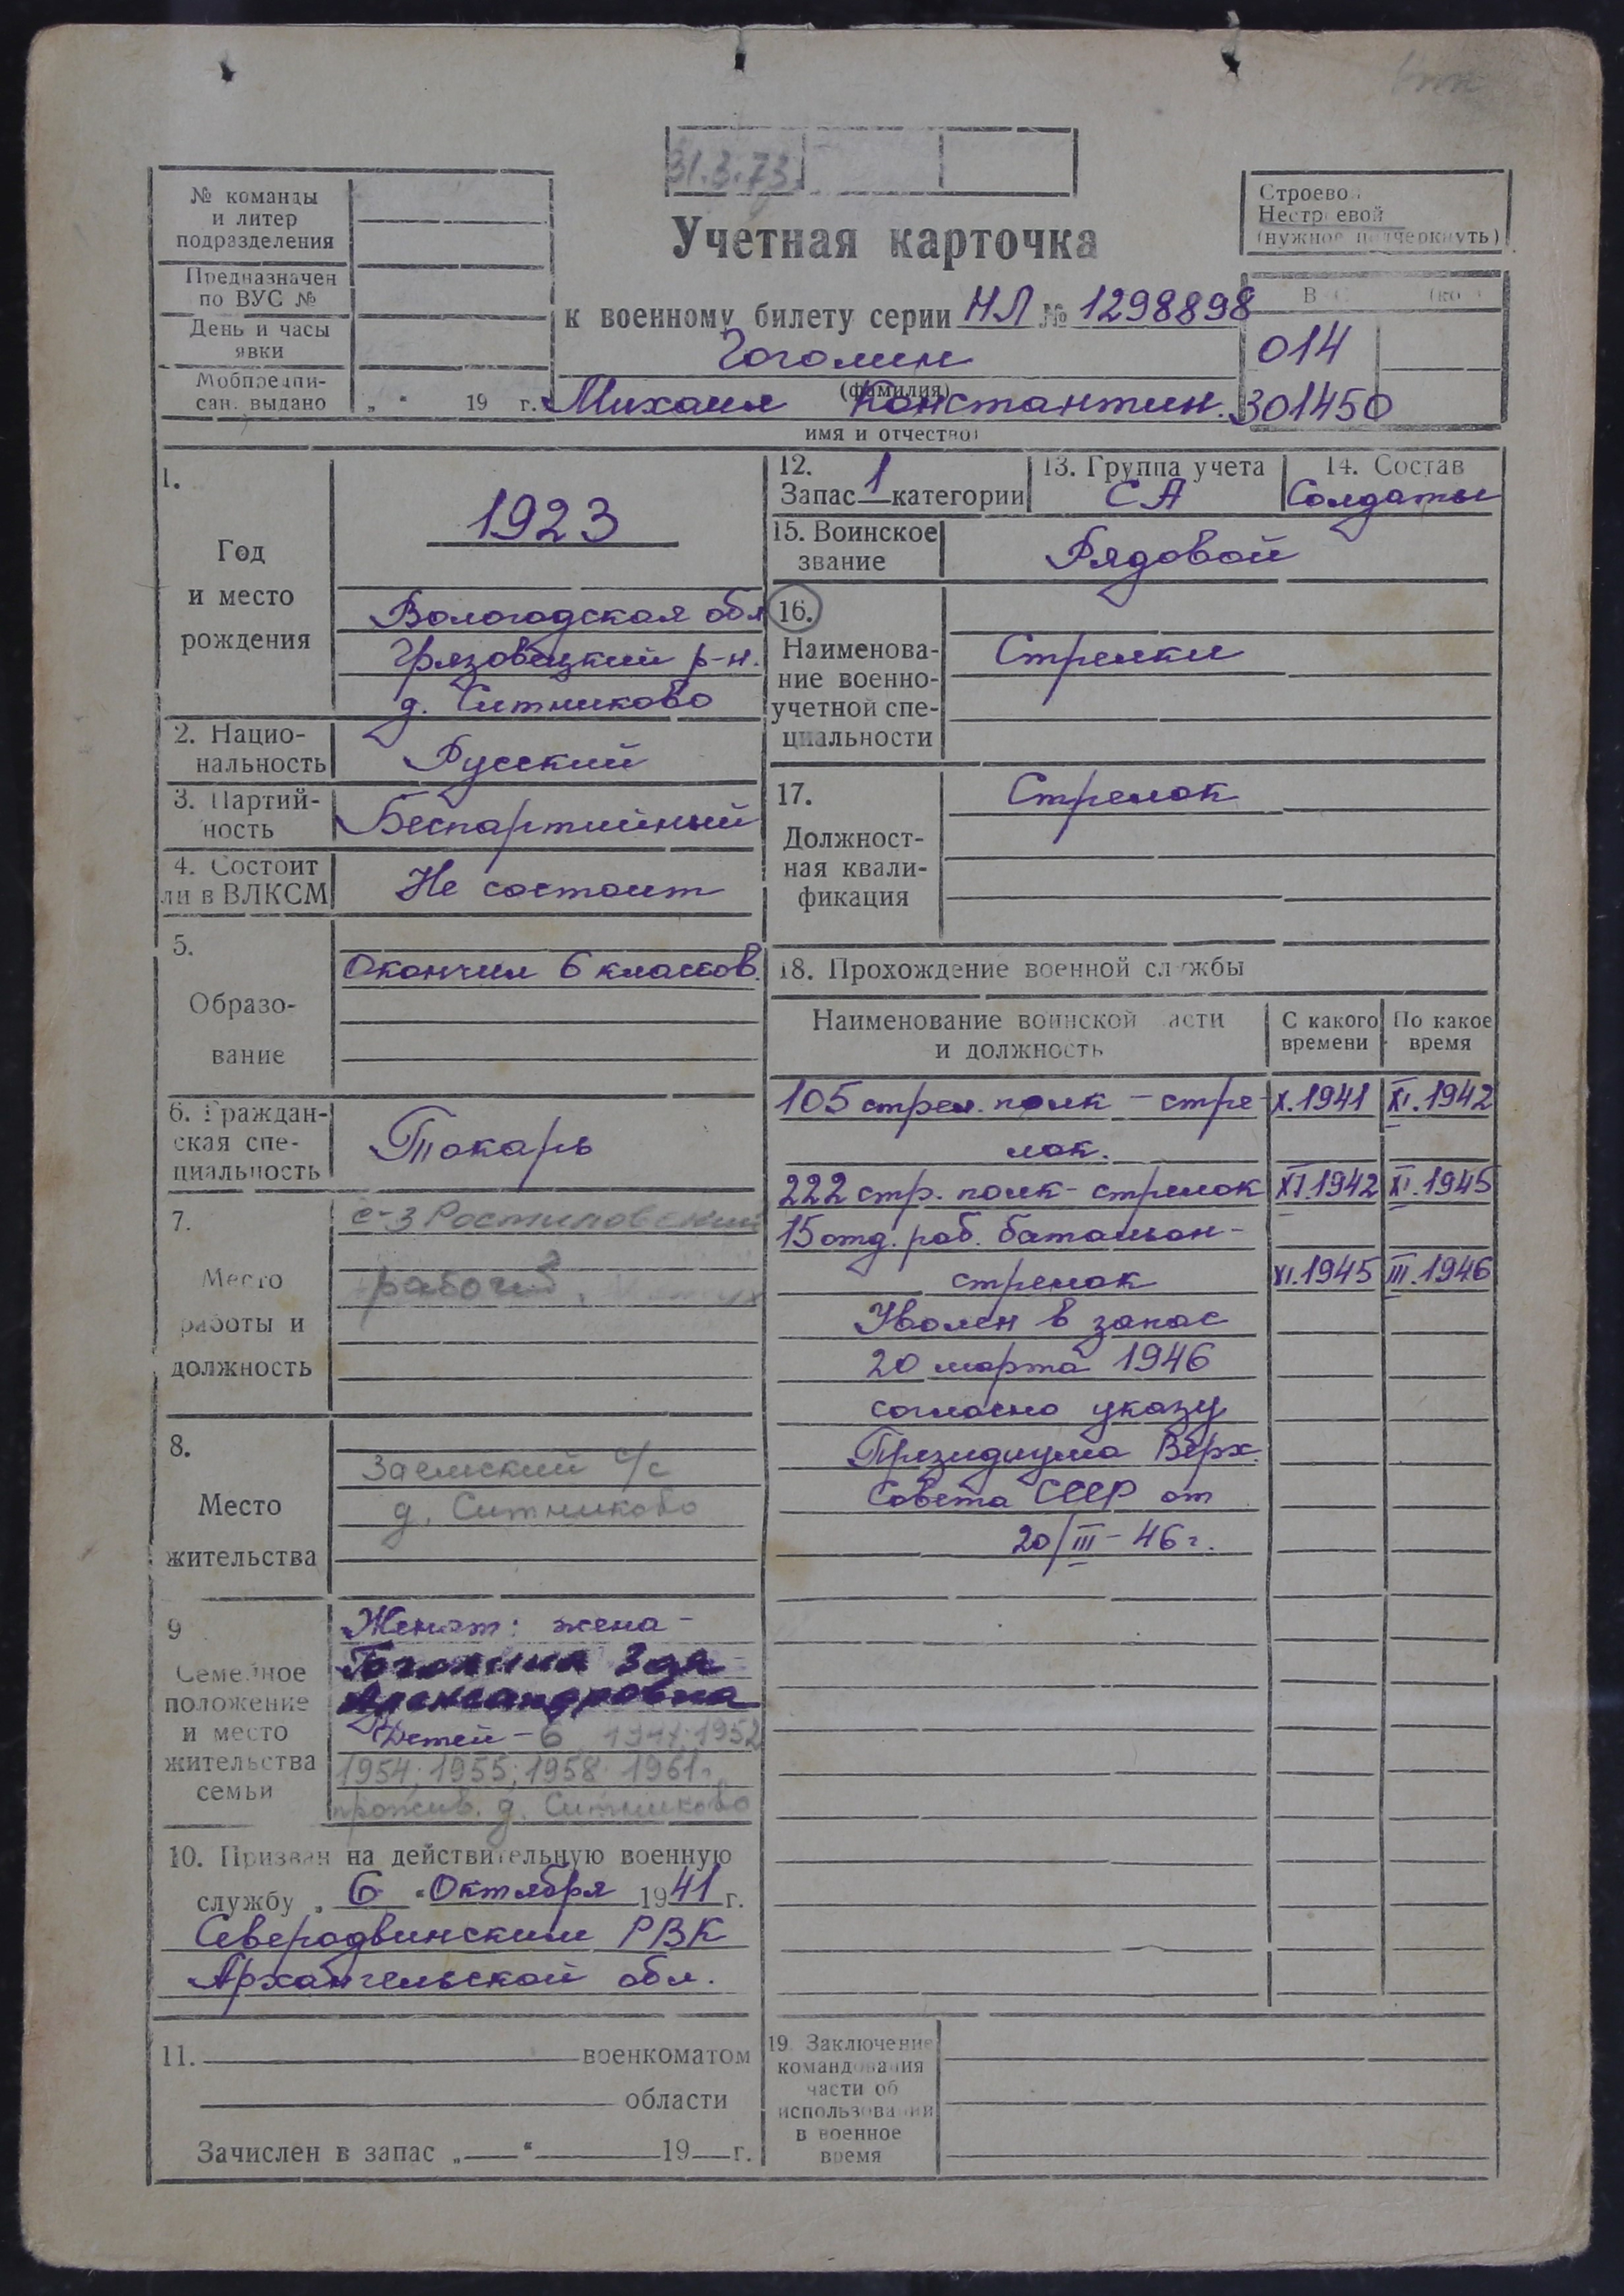 31.3.73
№ команды
и литер
подразделения
Предназначен
по ВУС №
День и часы
явки
Мобпредпи-
сан. выдано „ “ 19 г.
Учетная карточка
к военному билету серии НЛ № 1298898
Гоголин
(фамилия)
Михаил Константин.
имя и отчество)
Строевой
Нестроевой
(нужное подчеркнуть)
014
301450
1.
Год
и место
рождения
1923
Вологодская обл
Грязовецкий р-н.
д. Ситниково
2. Нацио-
нальность
Русский
3. Партий-
ность
Беспартийный
4. Состоит
ли в ВЛКСМ
Не состоит
5.
Образо-
вание
Окончил 6 классов.
6. Граждан-
ская спе-
циальность
Токарь
7.
Место
работы и
должность
с-з Ростиловский
рабочий
8.
Место
жительства
Заемский с/с
д. Ситниково
9
Семейное
положение
и место
жительства
семьи
Женат: жена -
Гоголина Зоя
Александровна
Детей - 6 1952
1954; 1955; 1958 1961г
прожив. д. Ситниково
10. Призван на действительную военную
службу „ 6 “ Октября 1941 г.
Северодвинским РВК
Архангельской обл.
11. военкоматом
области
Зачислен в запас „ — “ 19 — г.
12.
Запас 1 категории
13. Группа учета
СА
14. Состав
Солдаты
15. Воинское
звание
Рядовой
16.
Наименова-
ние военно-
учетной спе-
циальности
Стрелки
17.
Должност-
ная квали-
фикация
Стрелок
18. Прохождение военной службы
Наименование воинской части
и должность
С какого
времени
По какое
время
105 стрел. полк - стре- X.1941 XI.1942
лок.
222 стр. полк - стрелок XI.1942 XI.1945
15 отд. раб. батальон -
стрелок XI.1945 III.1946
Уволен в запас
20 марта 1946
согласно указу
Президиума Верх.
Совета СССР от
20/III - 46 г.
19. Заключение
командования
части об
использовании
в военное
время